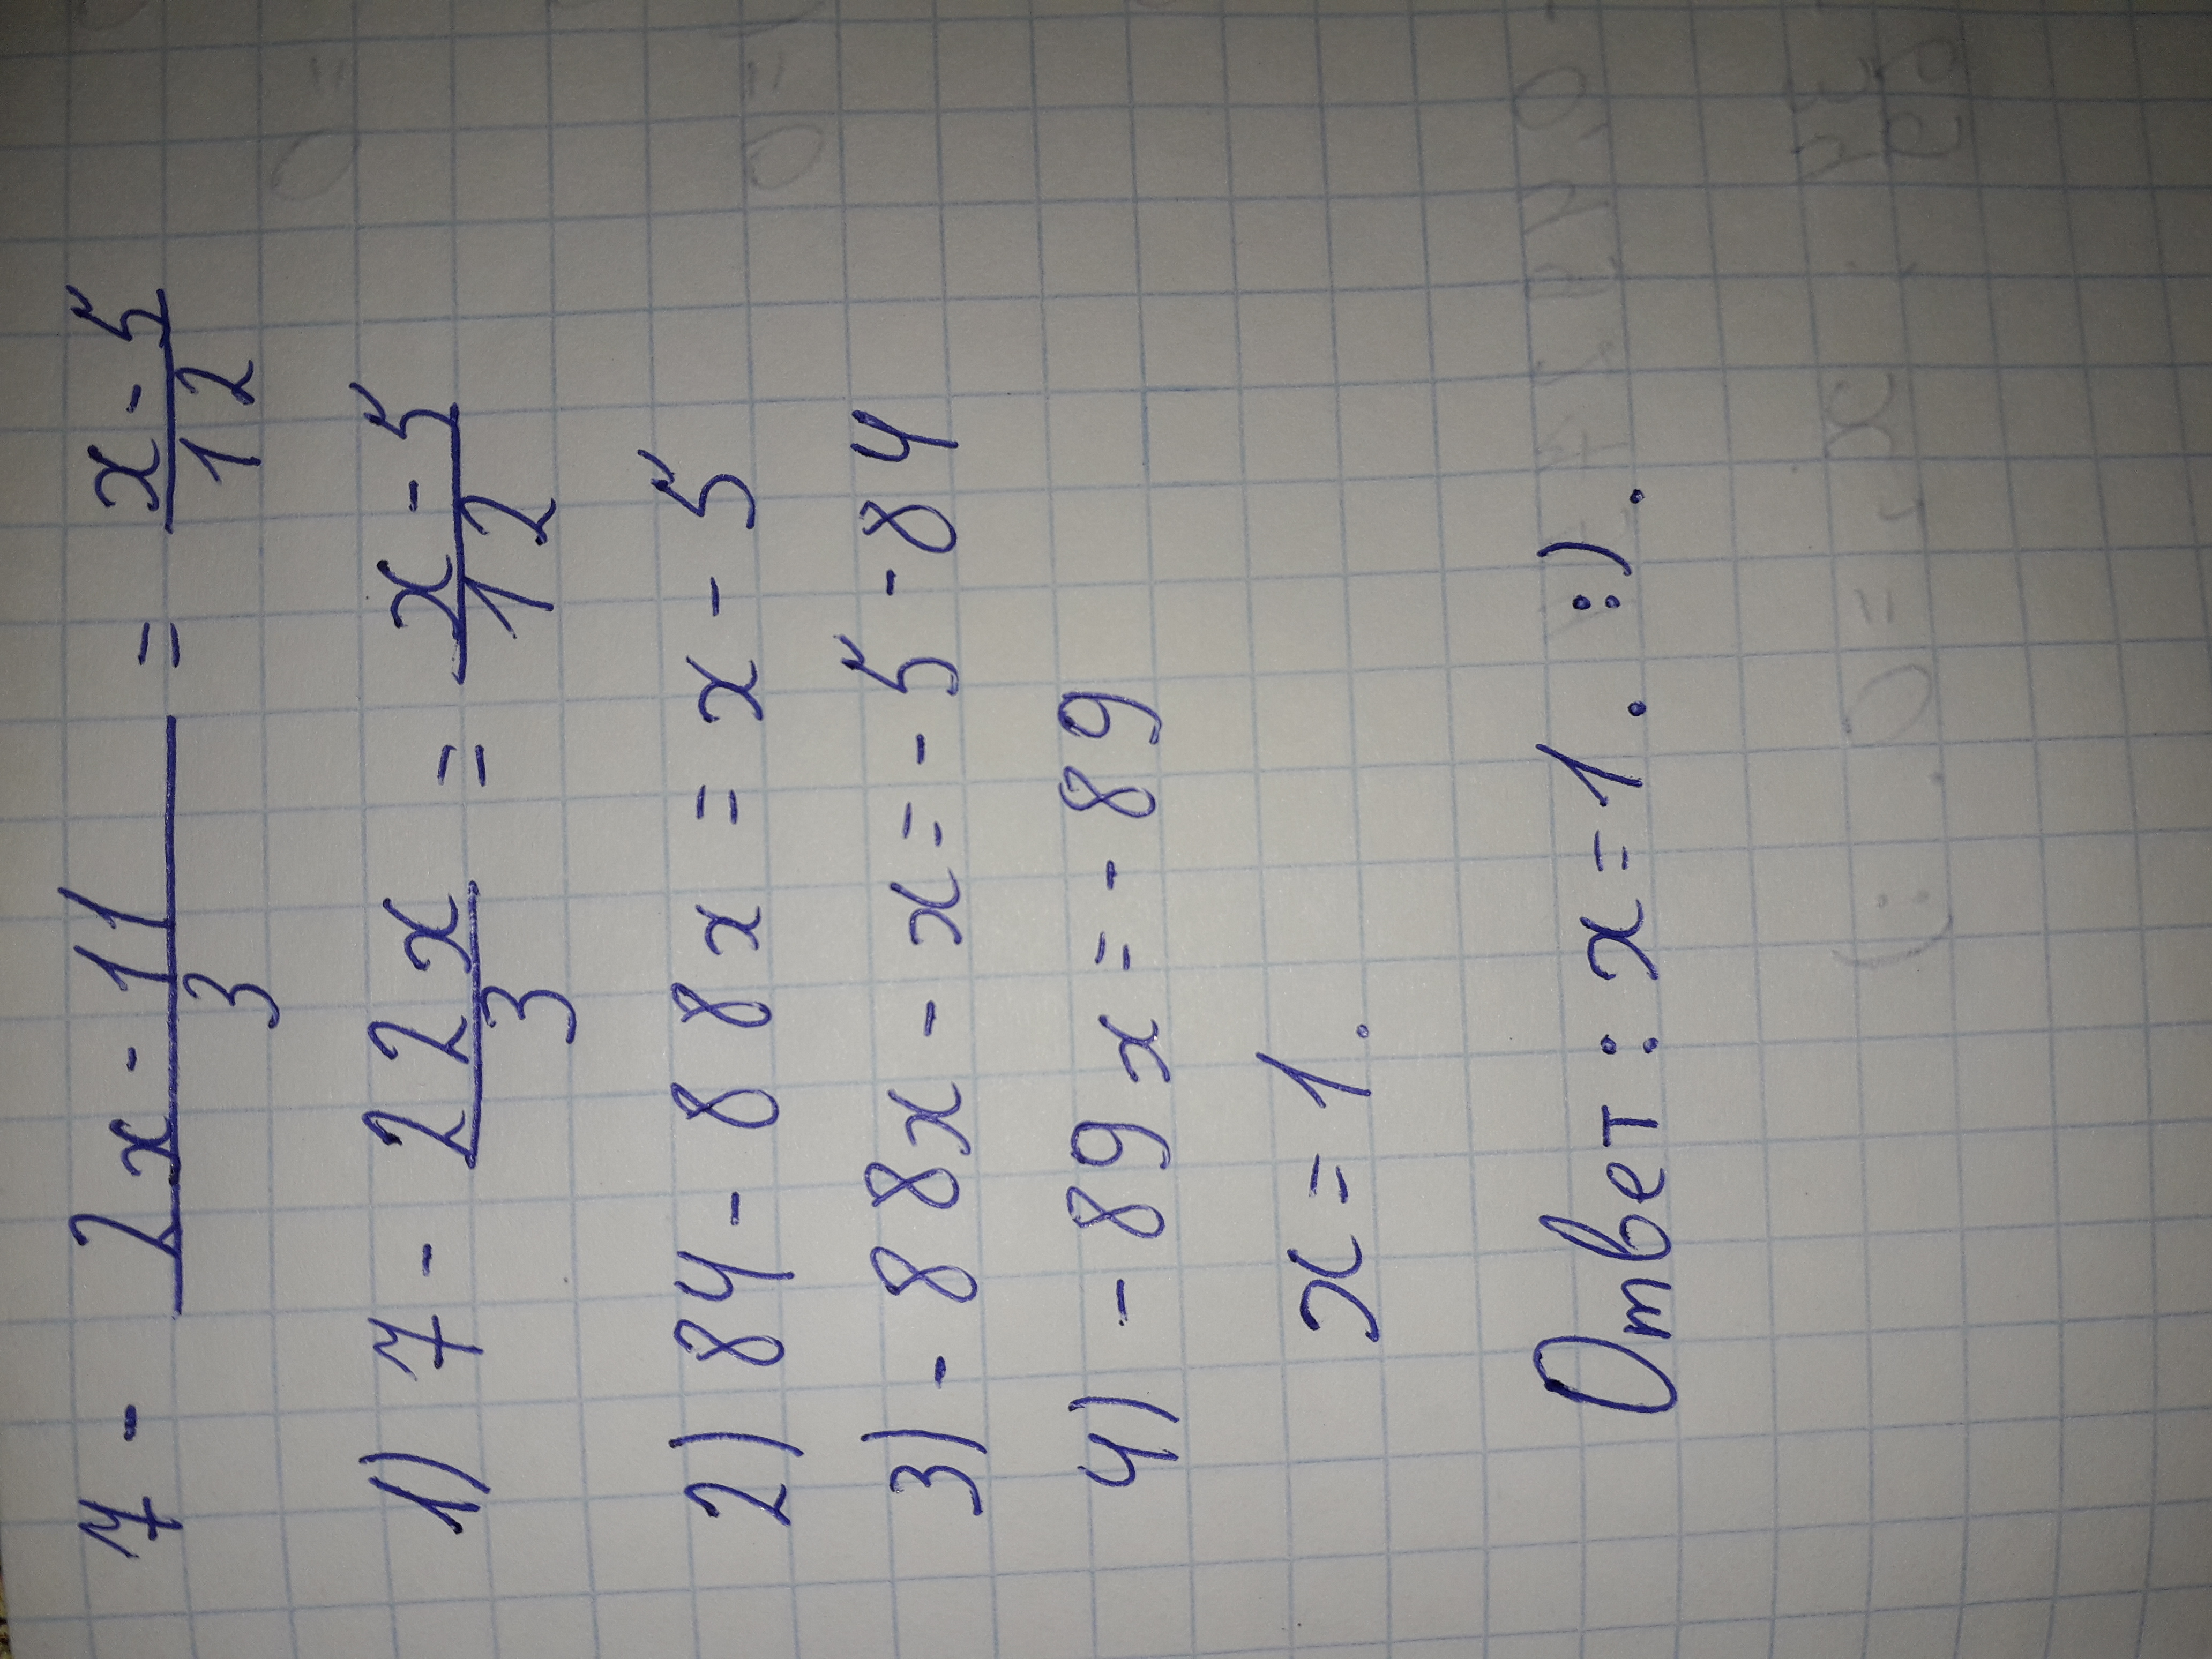 7 - \frac{2x - 11}{3} = \frac{x - 5}{12}
1) 7 - \frac{22x}{3} = \frac{x - 5}{12}
2) 84 - 88x = x - 5
3) - 88x - x = - 5 - 84
4) - 89x = - 89
x = 1.
Ответ: x = 1. :).